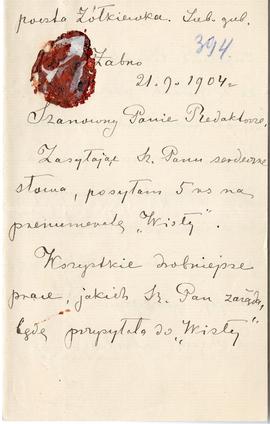 poczta Żółkiewka. Lub. gub.
394.
Żabno
21.9. 1904 r.
Szanowny Panie Redaktorze,
Zasyłając Sz. Panu serdeczne
słowa, posyłam 5 rs na
prenumeratę „Wisły".
Wszystkie drobniejsze
prace, jakich Sz. Pan zażąda,
będę przysyłała do „Wisły"